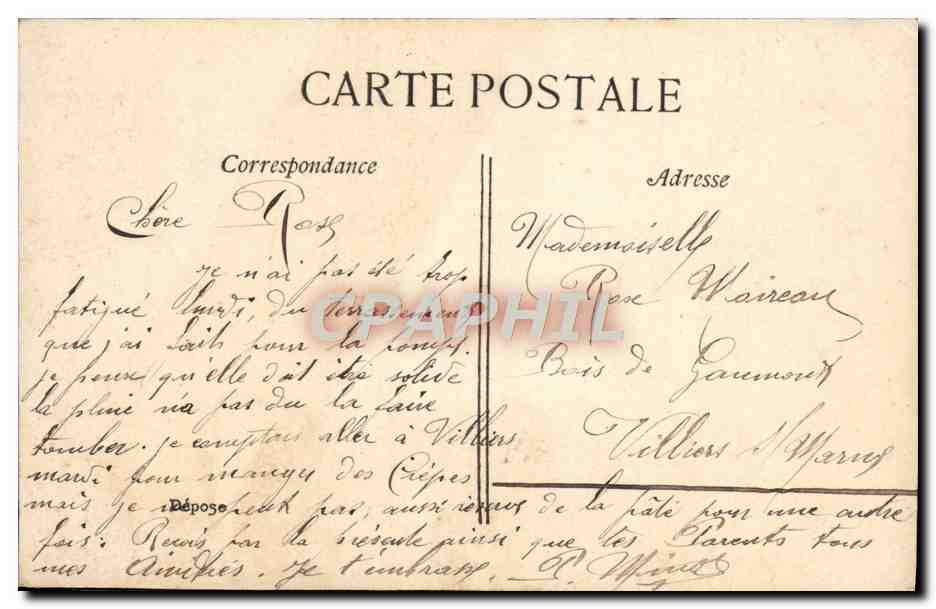 CARTE POSTALE
Correspondance
Chère Rose
je n'ai pas été trop
fatigué lundi, du terrassement
que j'ai fait pour la pompe.
je pense qu'elle doit être solide
la pluie n'a pas du la faire
tomber. je comptais aller à Villiers
mardi pour manger des Crêpes
mais je peux pas, aussi réserve de la pâte pour une autre
fois. Reçois par la présente ainsi que tes Parents tous
mes Amitiés. Je t'embrasse.
Déposé
Adresse
Mademoiselle
Rose
Bois de Gaumont
Villiers s/Marne
CPAPHIL